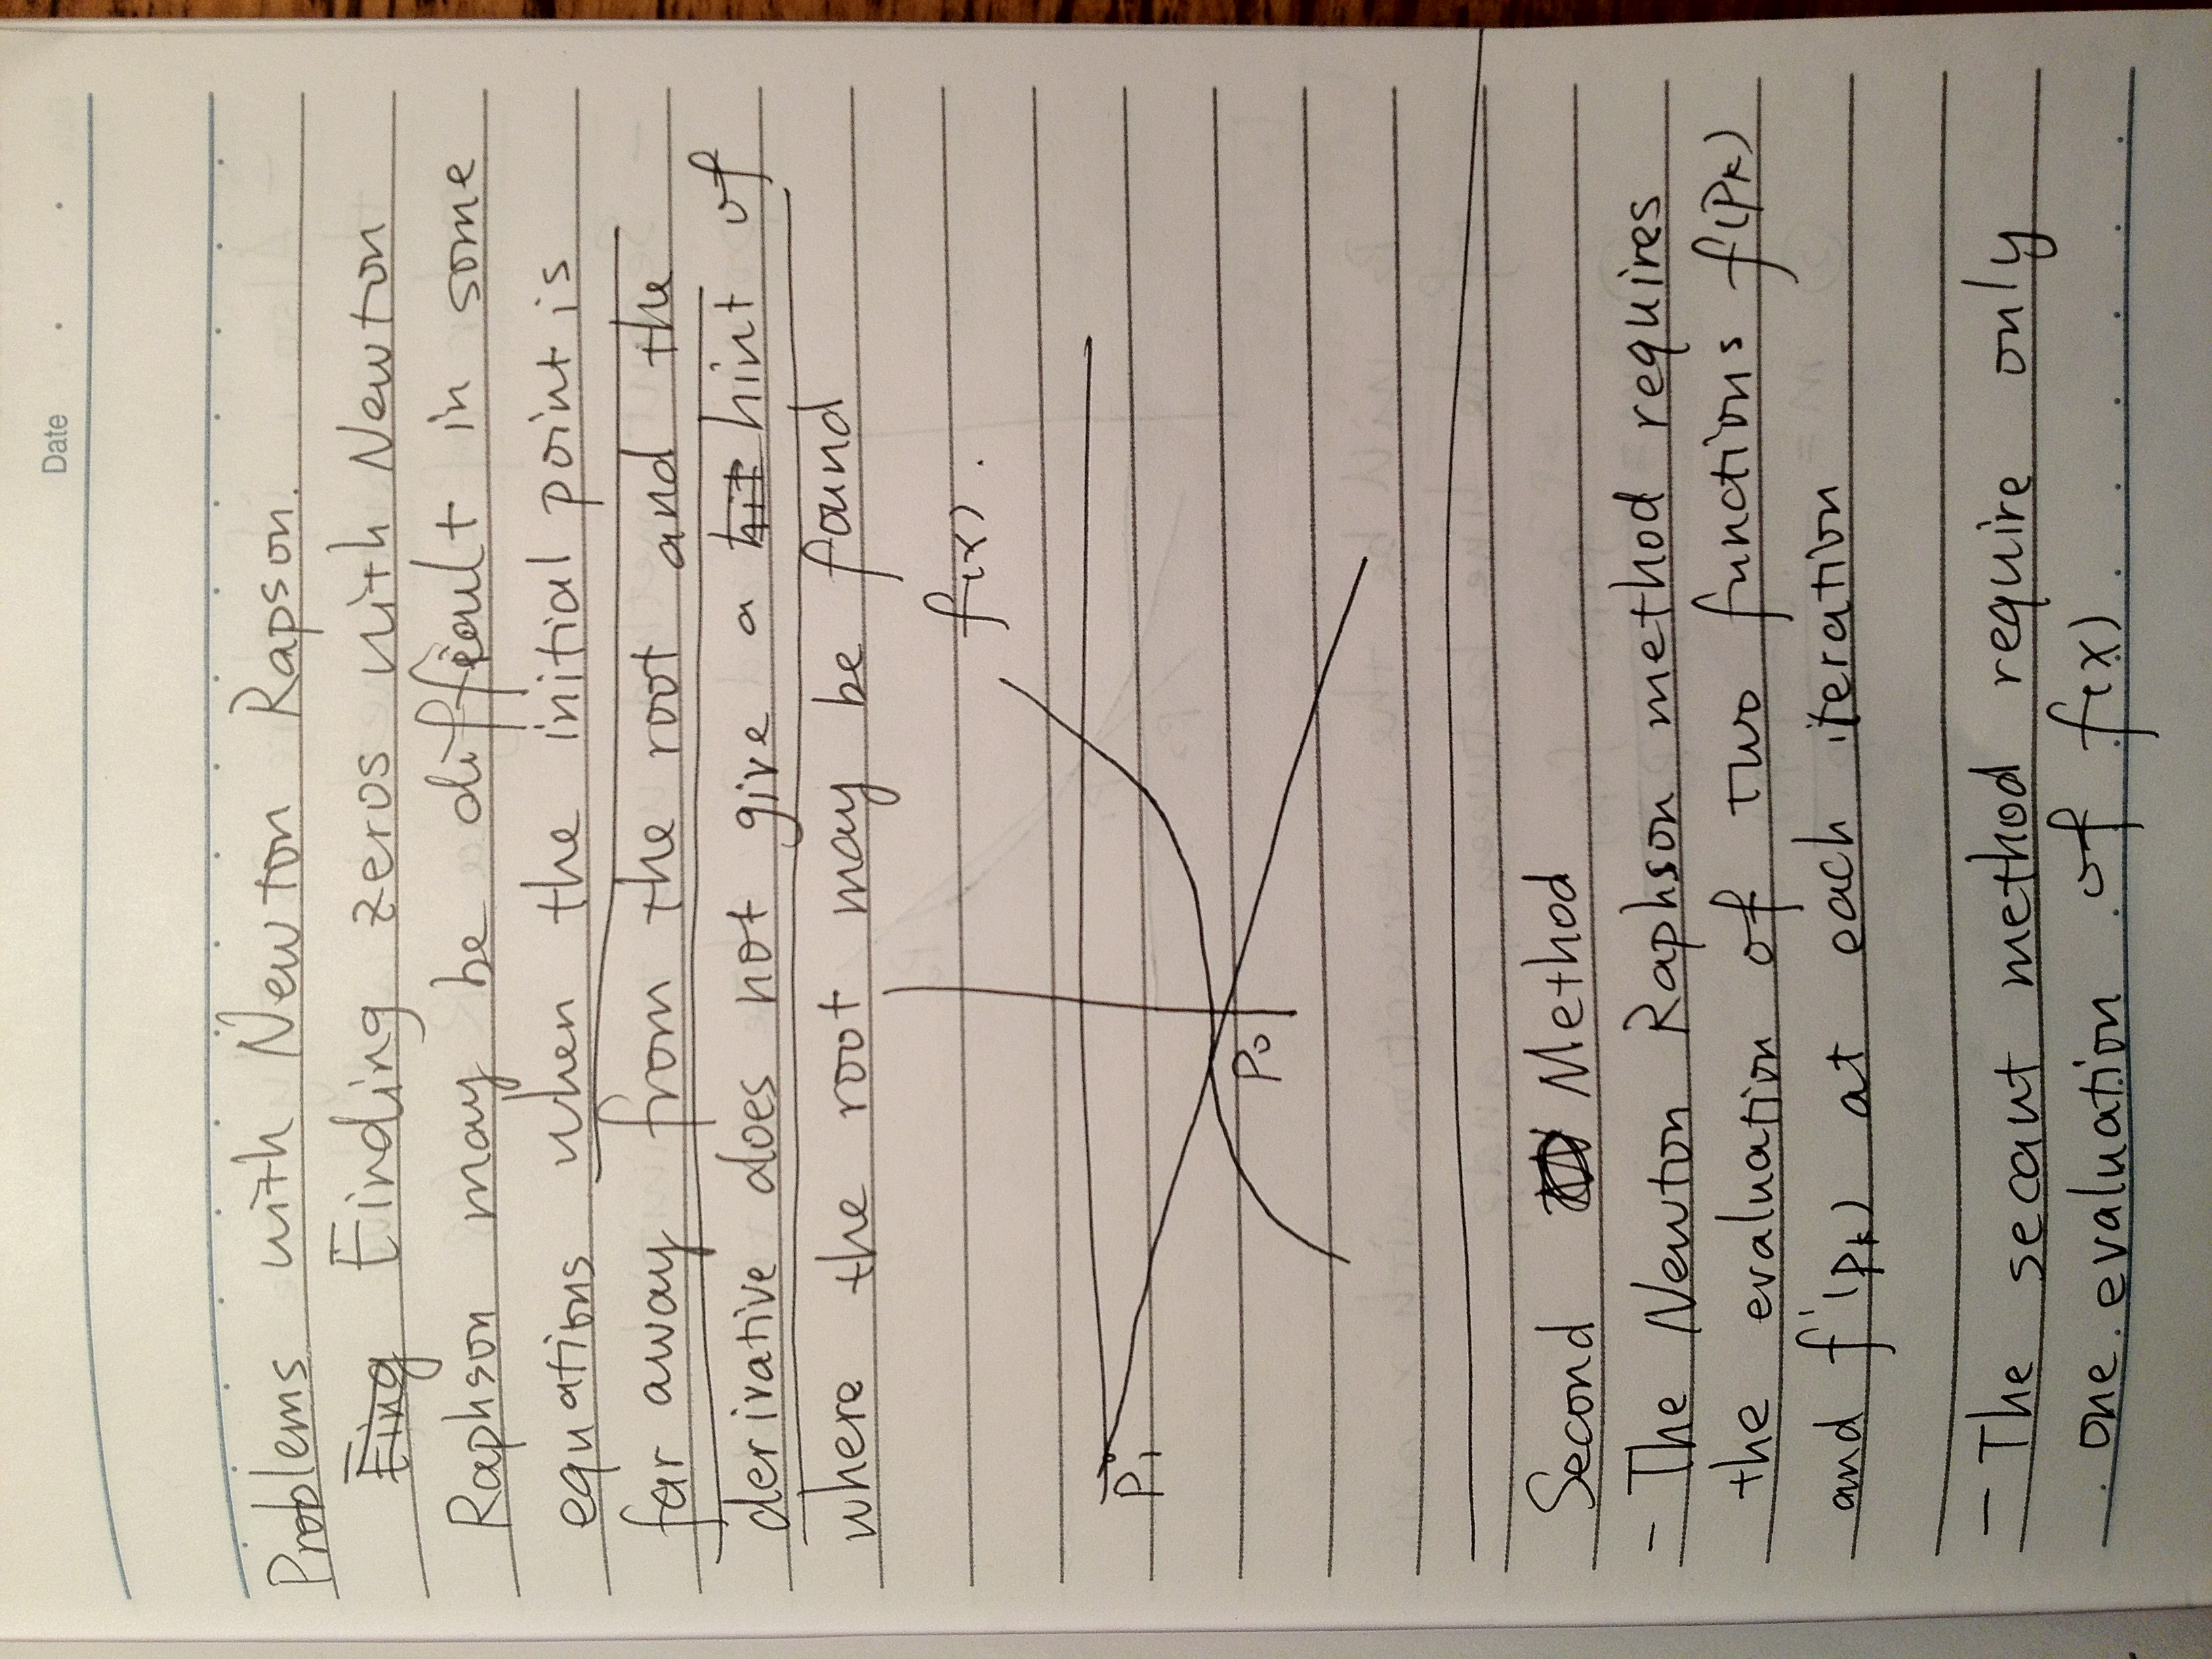 Date
Problems with Newton Rapson.
Fing Finding zeros with Newton
Raphson may be difficult in some
equations when the initial point is
far away from the root and the
derivative does not give a hit hint of
where the root may be found
f(x).
P1
P0
Second Method
- The Newton Raphson method requires
the evaluation of two functions f(Pk)
and f'(Pk) at each iteration
- The secant method require only
one evaluation of f(x)